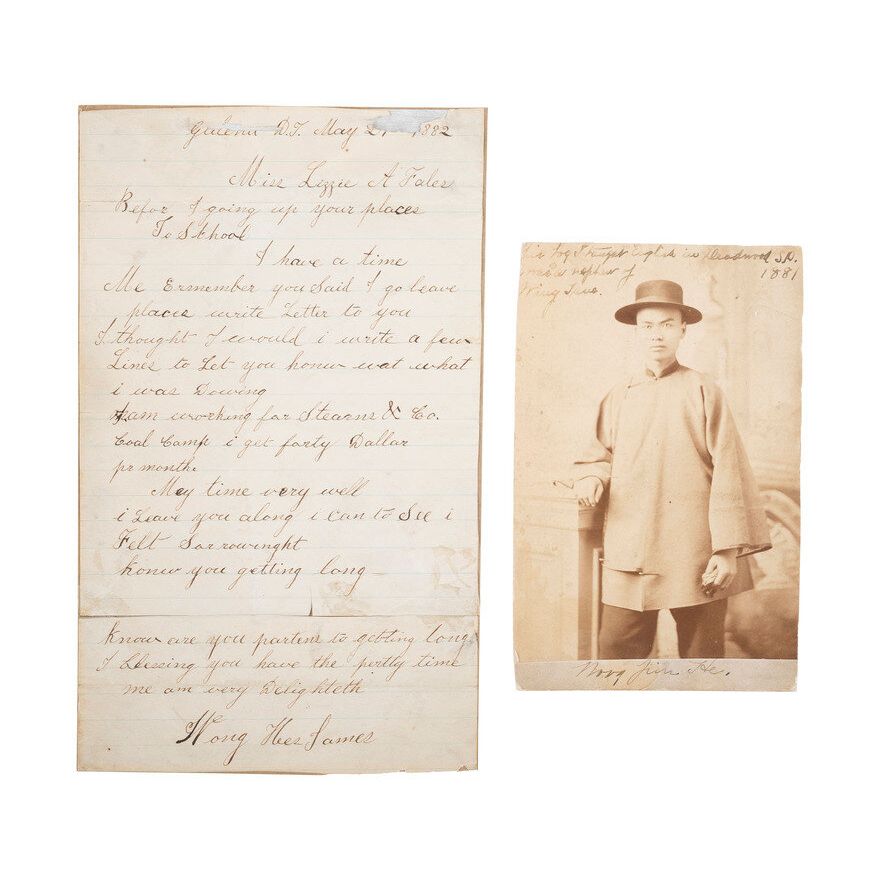 Galena D.T. May 2 1882
Miss Lizzie A Fales
Befor I going up your places
To Sthool
I have a time
Me Ermember you Said I go leave
places write Letter to you
I thought I would i write a few
Lines to Let you konw wat what
i was Dowing
I am working for Stearns & Co.
Coal Camp i get forty Dallar
pr month.
Mey time very well
i Leave you along i can to See i
Felt Sorrowinght
konw you getting long
Know are you partens to getting long
I blessing you have the pirtly time
me am very Delighteth
Wong Hee James
boy I taught English in Deadwood S.D.
nephew of 1881
Wing Tsue.
Wong He.